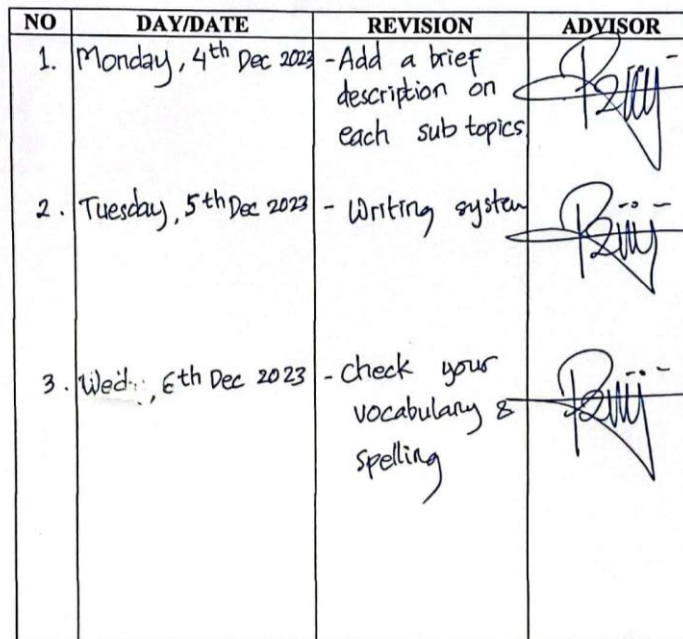 NO DAY/DATE REVISION ADVISOR
1. Monday, 4th Dec 2023 - Add a brief
description on
each sub topics
2. Tuesday, 5th Dec 2023 - Writing system
3. Wed, 6th Dec 2023 - Check your
vocabulary &
spelling